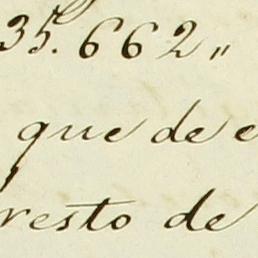 35.662"
que de e
resto de